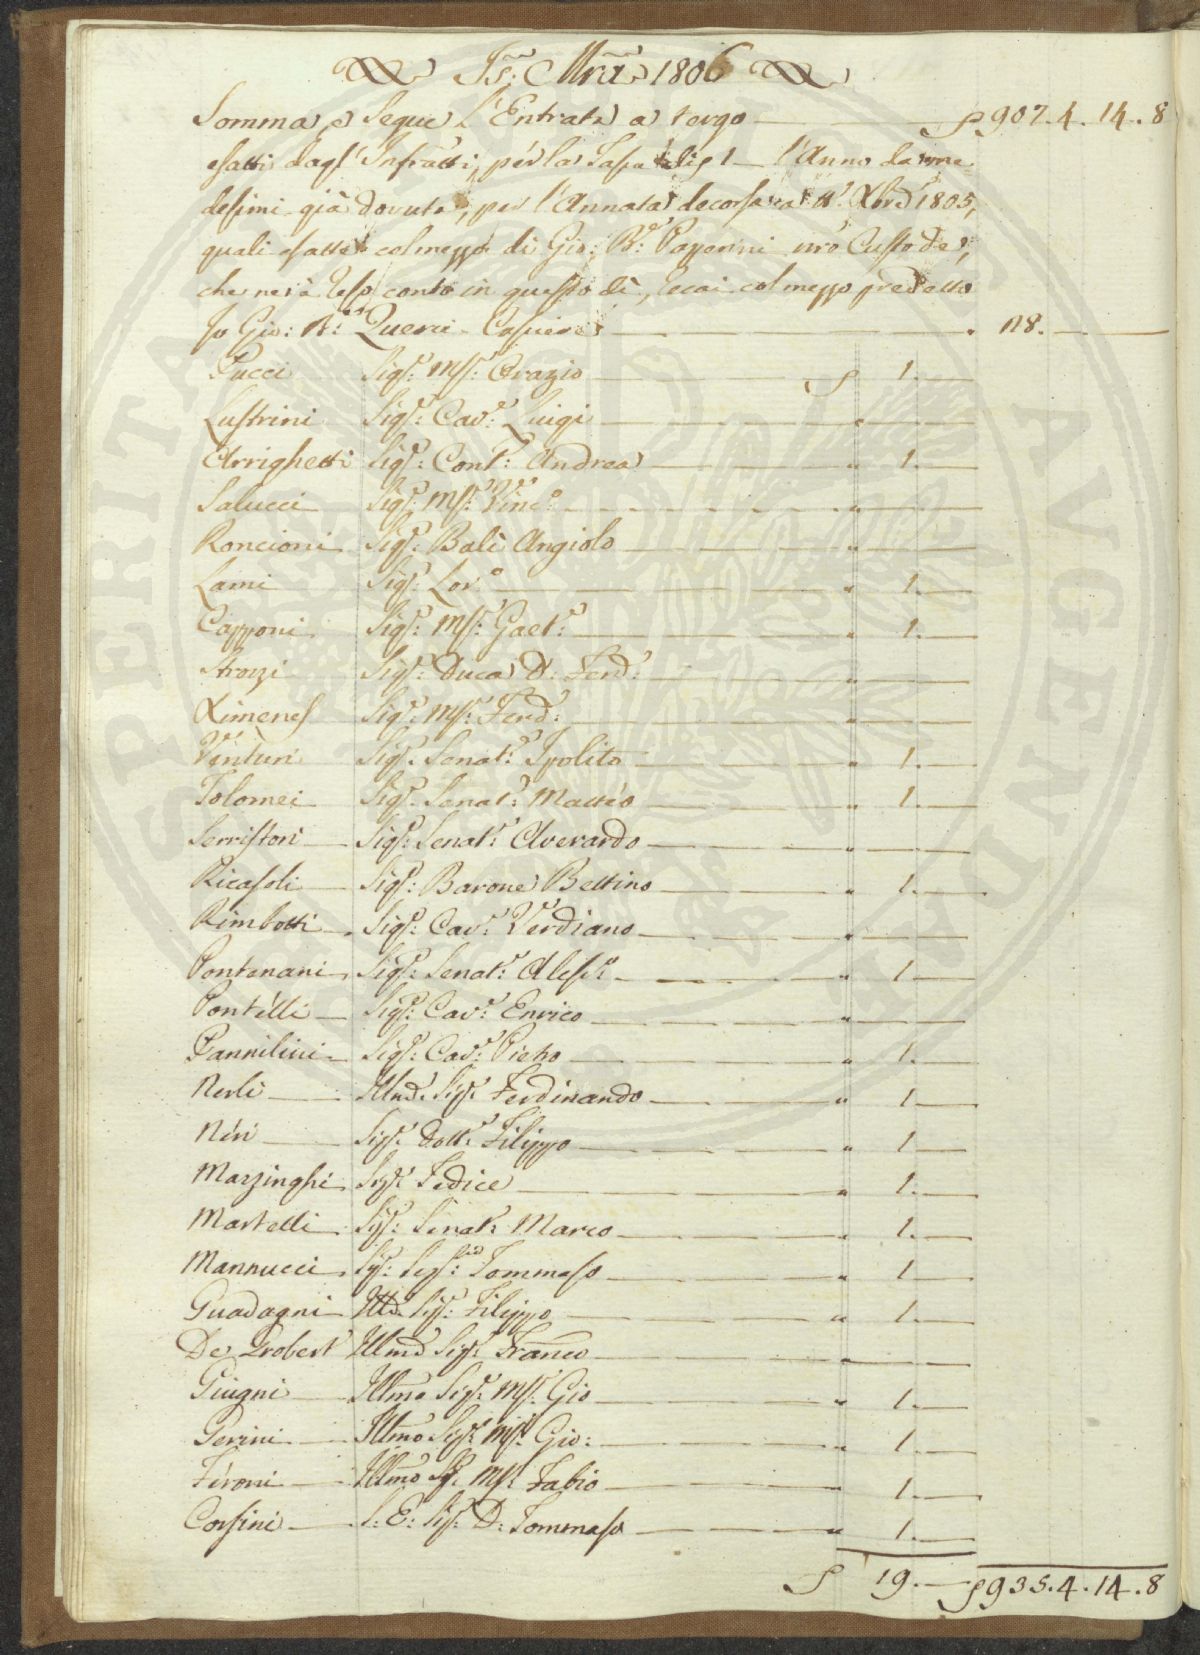 Is: Mrã 1806
Somma e Segue l'Entrata a tergo — ₰ 907. 4. 14. 8
esatti dagl' Infratti, per la Tassa di ₰ 1 — l'Anno da me-
desimi già dovuta, per l'Annata decorsa a Xbre 1805,
quali esatte col mezzo di Gio: Bã: Papponi nrõ Custode,
che ne rã reso conto in questo dì, recai col mezzo predetto
Io Gio: Bã: Querci Cassiere — 28. —
Pucci Sigr: Mse: Orazio — ₰ 1. —
Lustrini Sigr: Cavr: Luigi — " —
Arrighetti Sigr: Conte: Andrea — " 1. —
Salucci Sigr: Mse: Vinco: — " —
Roncioni Sigr: Balì Angiolo — " —
Lami Sigr: Loro: — " 1. —
Capponi Sigr: Mse: Gaeto: — " 1. —
Strozzi Sigr: Duca D: Ferdo: — " —
Ximenes Sigr: Mse: Ferdo: — " —
Venturi Sigr: Senatr: Ipolito — " 1. —
Tolomei Sigr: Senatr: Matteo — " 1. —
Serristori Sigr: Senatr: Averardo — " —
Ricasoli Sigr: Barone Bettino — " 1. —
Rimbotti Sigr: Cavr: Verdiano — " —
Pontenani Sigr: Senatr: Alessro — " 1. —
Pontelli Sigr: Cavr: Enrico — " —
Pannilini Sigr: Cavr: Pietro — " 1. —
Nerli Illmõ: Sigr: Ferdinando — " 1. —
Neri Sigr: Dottr: Filippo — " 1. —
Marzinghi Sigr: Fedice — " 1. —
Martelli Sigr: Senatr: Marco — " 1. —
Mannucci Sigr: Segrio: Tommaso — " 1. —
Guadagni Illõ: Sigr: Filippo — " 1. —
De Probert Illmõ Sigr: Franco — " —
Giugni Illmo Sigr: Mse: Gio — " 1. —
Gerini Illmo Sigr: Mse: Gio: — " 1. —
Feroni Illmo Sigr: Mse: Fabio — " 1. —
Corsini S: E: Sigr: D: Tommaso — " 1. —
₰ 19. — ₰ 935. 4. 14. 8